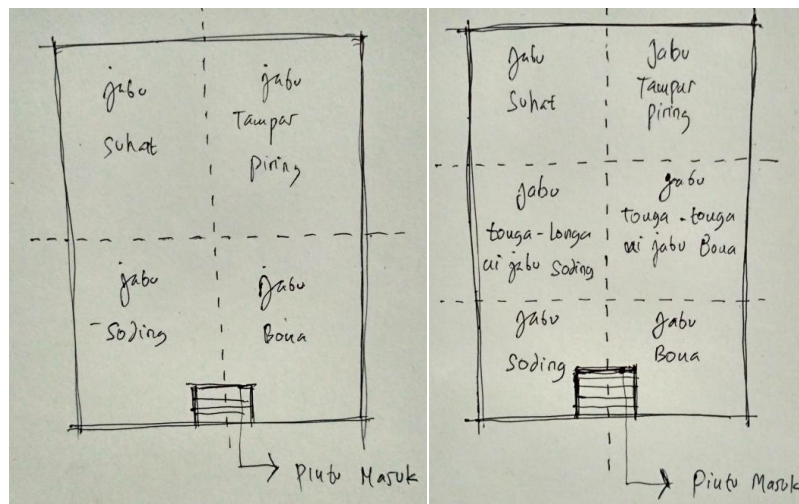 jabu
suhat
jabu
Tampar
piring
jabu
Soding
jabu
Bona
Pintu Masuk
Jabu
Suhat
Jabu
Tampar
piring
Jabu
touga-longa
ni jabu Soding
Jabu
touga-touga
ni jabu Bona
Jabu
Soding
Jabu
Bona
Pintu Masuk